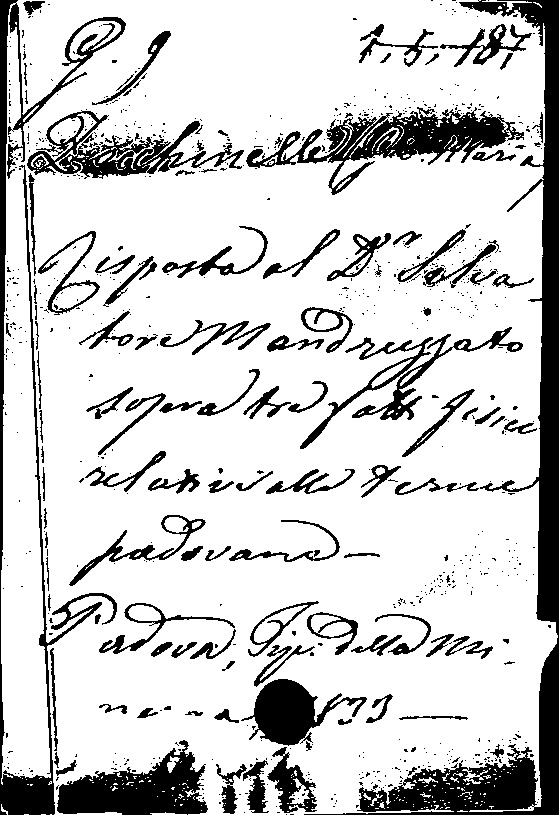 G. g 1, 5, 187
Zecchinelli Gio. Maria
Risposta al D.r Salva-
tore Mandruzzato
sopra tre fatti fisici
relativi alle terme
padovane —
Padova, Tip. della Mi-
nerva 1833 —